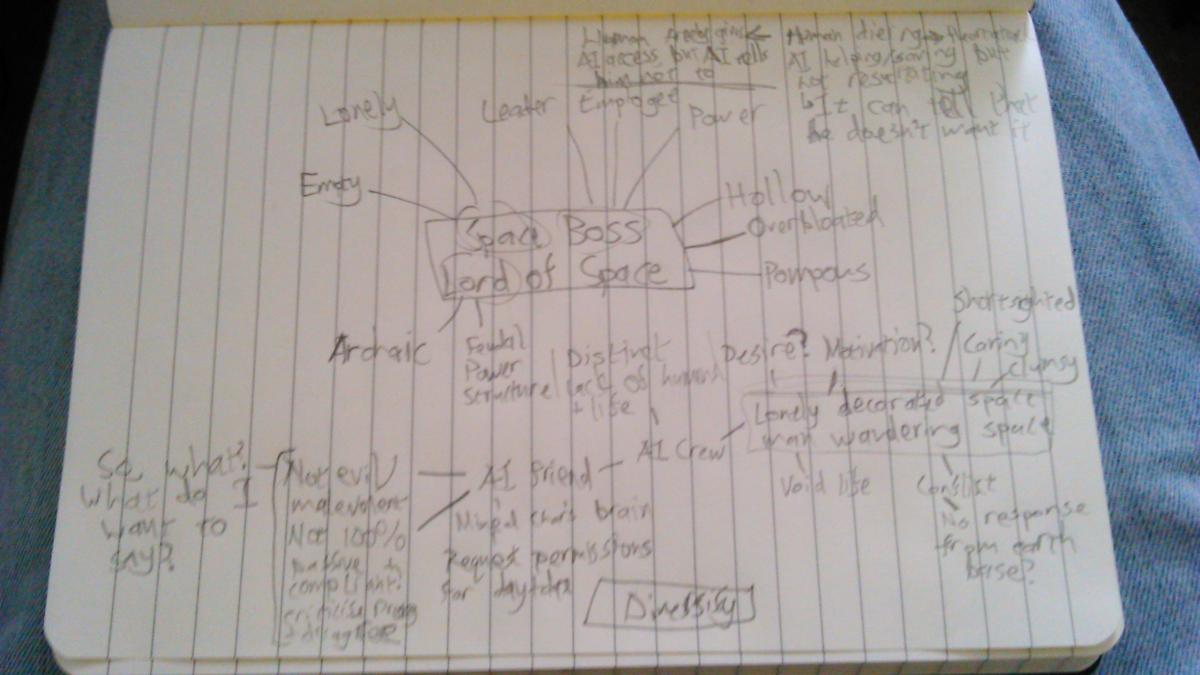 Human
AI access, but AI tells
him not to
Human dieing
AI helping/saving but
not resucitating
It can tell that
he doesn't want it
Lonely
Leader
Employee
Power
Empty
Hollow
Overbloated
Pompous
Space Boss
Lord of Space
Archaic
Feudal
Power
structure
Distinct
lack of human
+ life
Desire? Motivation?
Shortsighted
Caring
Clumsy
Lonely decorated space
man wandering space
AI Crew
AI friend
Void life
Conflict
No response
from earth
base?
So what?
What do I
want to
say?
Not evil
malevolent
Not 100%
passive +
compliant?
brain
Request permissions
for
Diversify